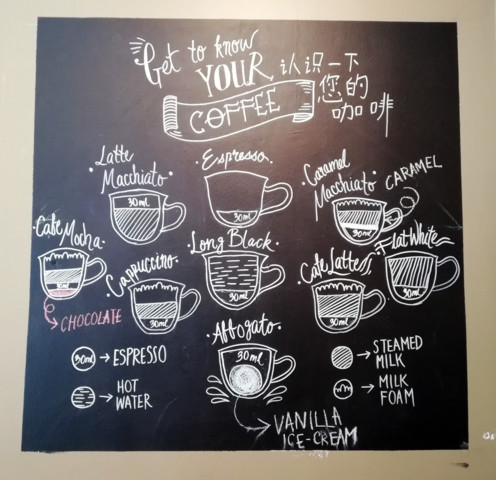 Get to know
YOUR
COFFEE
认识一下
您的
咖啡
Latte
Macchiato
30ml
Espresso
30ml
Caramel
Macchiato
30ml
CARAMEL
Cafe Mocha
30ml
CHOCOLATE
Cappuccino
30ml
Long Black
30ml
Cafe Latte
30ml
Flat White
30ml
Affogato
30ml
VANILLA
ICE-CREAM
30ml → ESPRESSO
→ HOT
WATER
→ STEAMED
MILK
→ MILK
FOAM